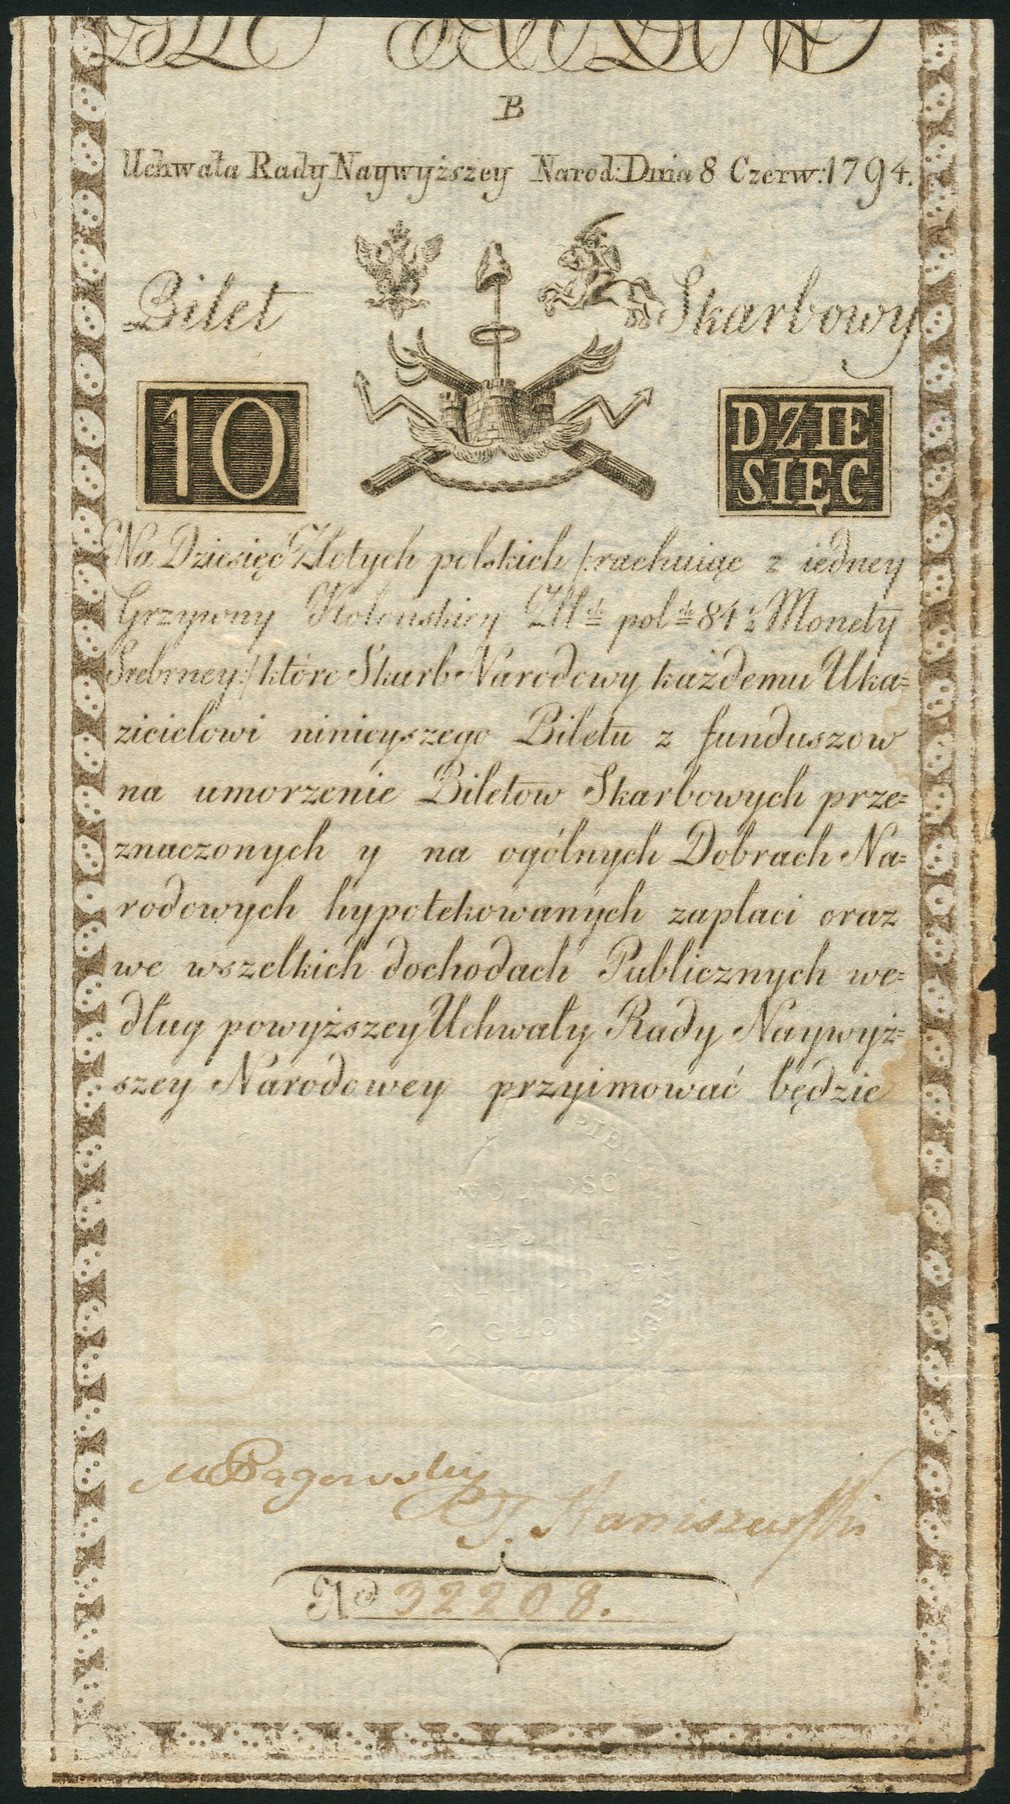 B
Uchwała Rady Naywyższey Narod: Dnia 8 Czerw: 1794.
Bilet Skarbowy
10
DZIE
SIĘC
Na Dziesięć Złotych polskich /:rachuiąc z iedney
Grzywny Kolonskiey Zł. pol. 84 ½ Monety
Srebrney:/ które Skarb Narodowy każdemu Uka=
zicielowi ninieyszego Biletu z funduszow
na umorzenie Biletow Skarbowych prze=
znaczonych y na ogólnych Dobrach Na=
rodowych hypotekowanych zapłaci oraz
we wszelkich dochodach Publicznych we=
dług powyższey Uchwały Rady Naywyż=
szey Narodowey przyimować będzie
WOLNOSC
CALOSC
M Pągowski
T. Staniszewski
No 32208.